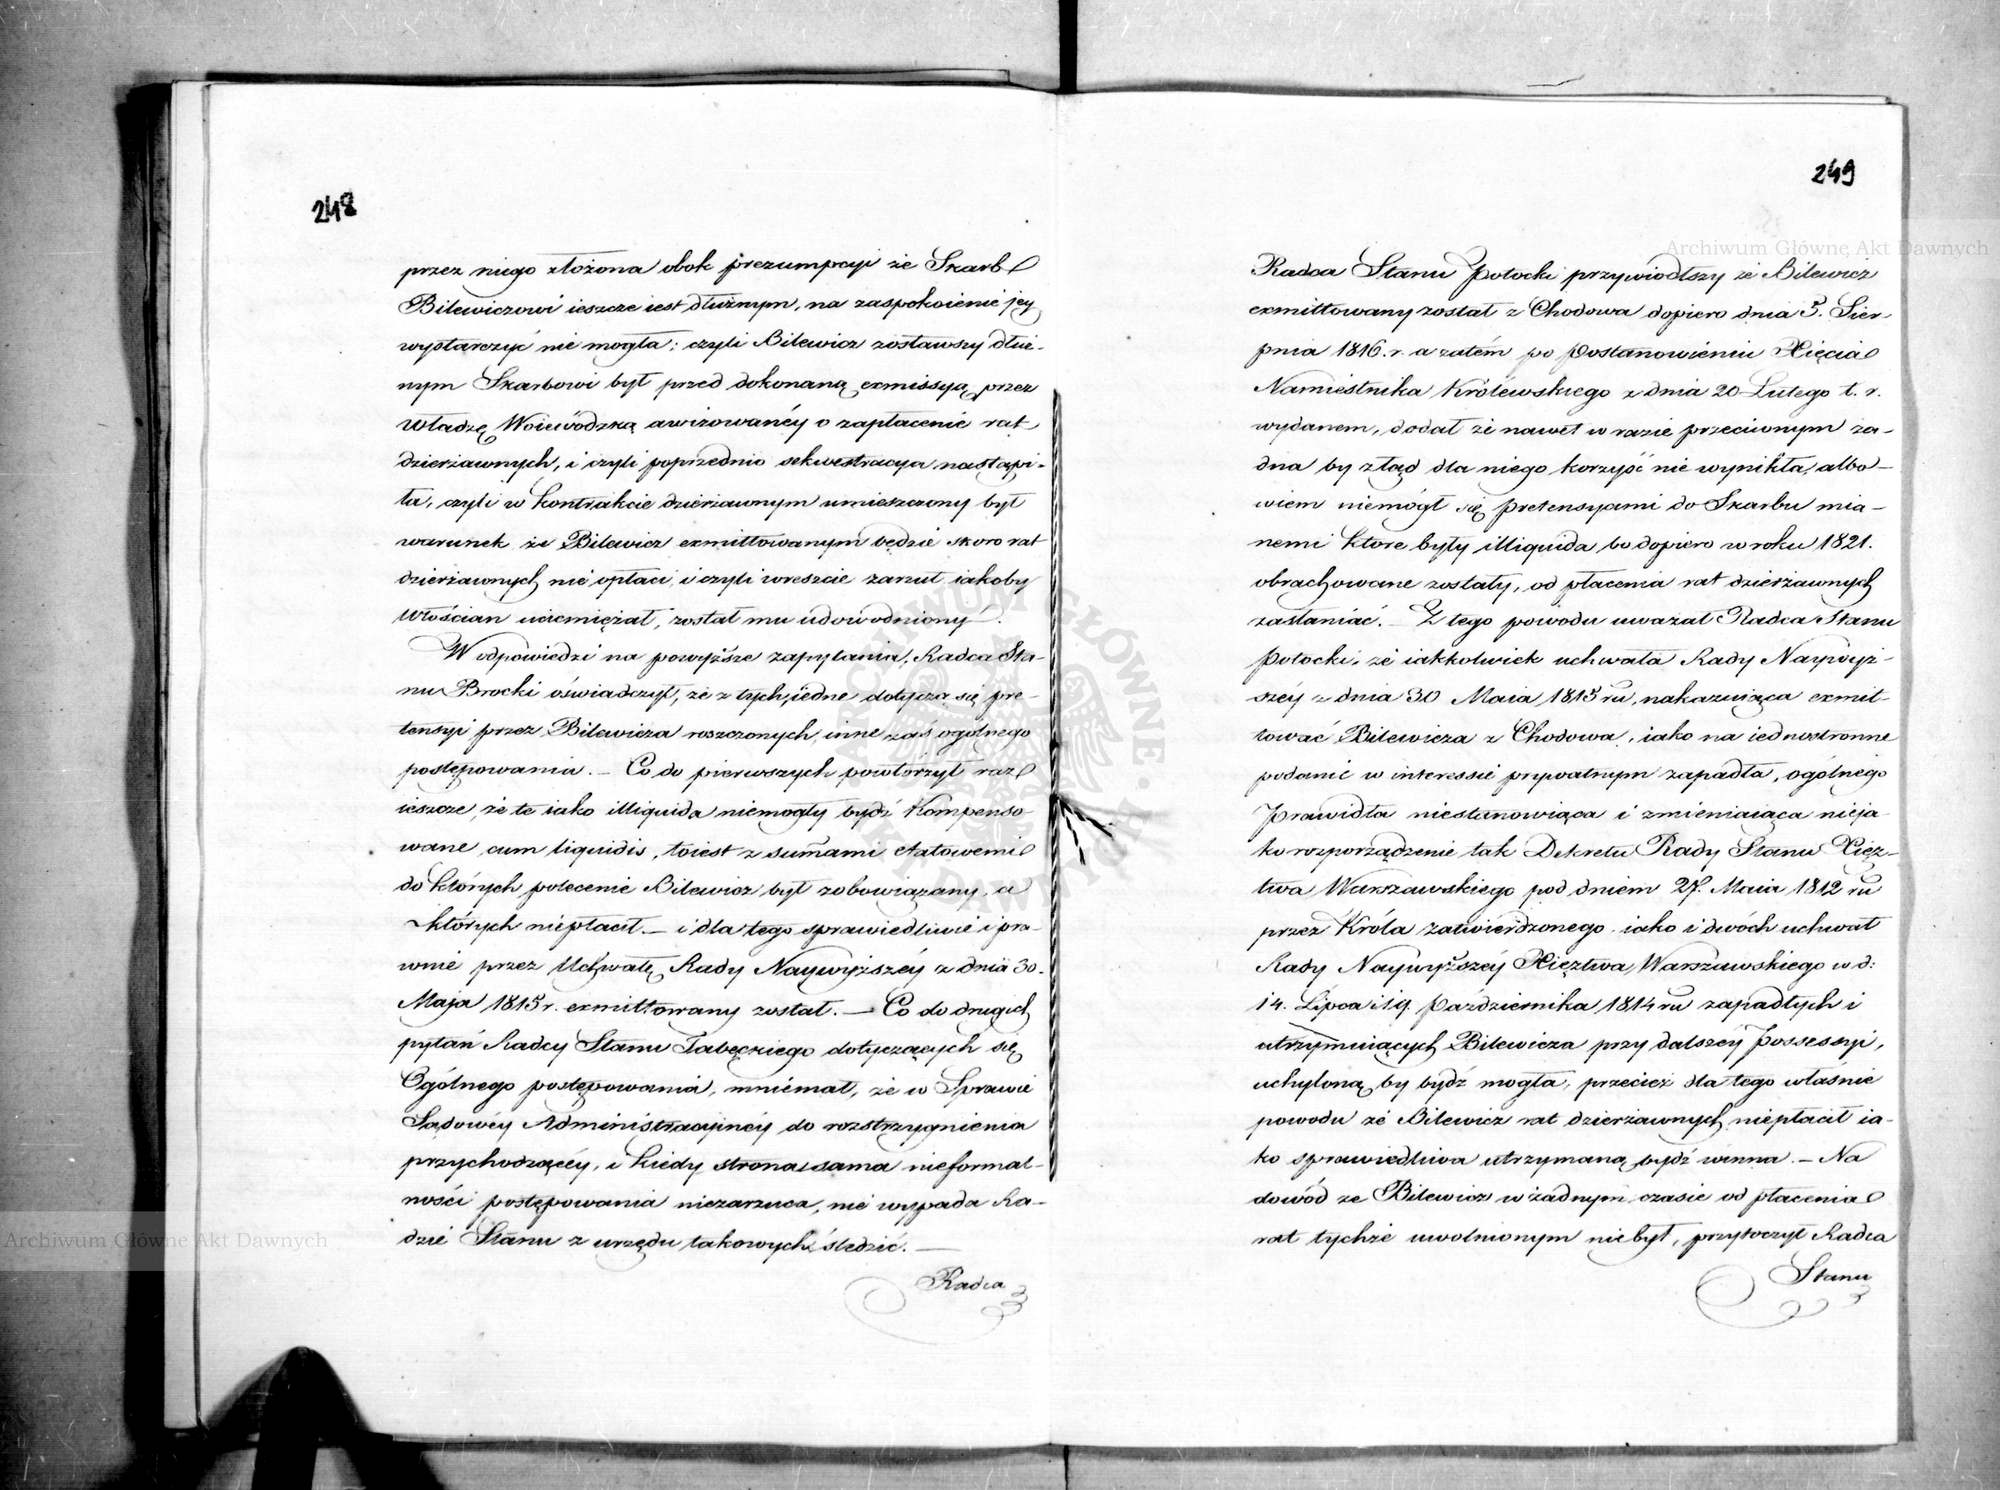 248
przez niego złożona obok prezumpcyi że Skarb
Bilewiczowi ieszcze iest dłużnym, na zaspokoienie jey
wystarczyć nie mogła; czyli Bilewicz zostawszy dłuż-
nym Skarbowi był przed dokonaną exmissyą przez
Władzę Woiewódzką awizowanéy o zapłacenie rat
dzierżawnych, i czyli poprzednio sekwestracya nastąpi-
ła, czyli w kontrakcie dzierżawnym umieszczony był
warunek że Bilewicz exmittowanym będzie skoro rat
dzierżawnych nie opłaci i czyli wreszcie zarzut iakoby
Włościan uciemiężał, został mu udowodniony.
W odpowiedzi na powyższe zapytania, Radca Sta-
nu Brocki oświadczył, że z tych, iedne dotyczą się pre-
tensyi przez Bilewicza roszczonych, inne zaś ogólnego
postępowania. – Co do pierwszych powtorzył raz
ieszcze, że te iako illiquida niemogły bydź kompenso
wane cum liquidis, toiest z summami etatowemi
do których polecenie Bilewicz był zobowiązany, a
których niepłacił. – i dla tego sprawiedliwie i pra-
wnie przez Uchwałę Rady Naywyższéy z dnia 30.
Maja 1815 r. exmittowany został. – Co do drugich
pytań Radcy Stanu Tabęckiego dotyczących się
Ogólnego postępowania, mniemał, że w Sprawie
Sądowéy Administracyinéy do rozstrzygnienia
przychodzącéy, i kiedy strona sama nieformal-
ności postępowania niezarzuca, nie wypada Ra-
dzie Stanu z urzędu takowych śledzić. –
Radca
249
Radca Stanu Potocki przywiodłszy że Bilewicz
exmittowany został z Chodowa dopiero dnia 5. Sier-
pnia 1816. r. a zatém po Postanowieniu Xięcia
Namiestnika Królewskiego z dnia 20 Lutego t. r.
wydanem, dodał że nawet w razie przeciwnym ża-
dna by ztąd dla niego korzyść nie wynikła, albo-
wiem niemógł się pretensyami do Skarbu mia-
nemi które były illiquida bo dopiero w roku 1821.
obrachowane zostały, od płacenia rat dzierżawnych
zasłaniać. – Z tego powodu uważał Radca Stanu
Potocki, że iakkolwiek uchwała Rady Naywyż-
széy z dnia 30 Maia 1815 ru, nakazuiąca exmit-
tować Bilewicza z Chodowa, iako na iednostronne
podanie w interessie prywatnym zapadła, ogólnego
Prawidła niestanowiąca i zmieniaiąca nieja-
ko rozporządzenie tak Dekretu Rady Stanu Xięz-
twa Warszawskiego pod dniem 27. Maia 1812 ru
przez Króla zatwierdzonego, iako i dwóch uchwał
Rady Naywyższéy Xięztwa Warszawskiego w d:
14. Lipca i 19. Października 1814 ru zapadłych i
utrzymuiących Bilewicza przy dalszéy Possessyi,
uchyloną by bydź mogła, przecież dla tego właśnie
powodu że Bilewicz rat dzierżawnych niepłacił ia-
ko sprawiedliwa utrzymaną bydź winna. – Na
dowód że Bilewicz w żadnym czasie od płacenia
rat tychże uwolnionym niebył, przytoczył Radca
Stanu
Archiwum Główne Akt Dawnych
Archiwum Główne Akt Dawnych